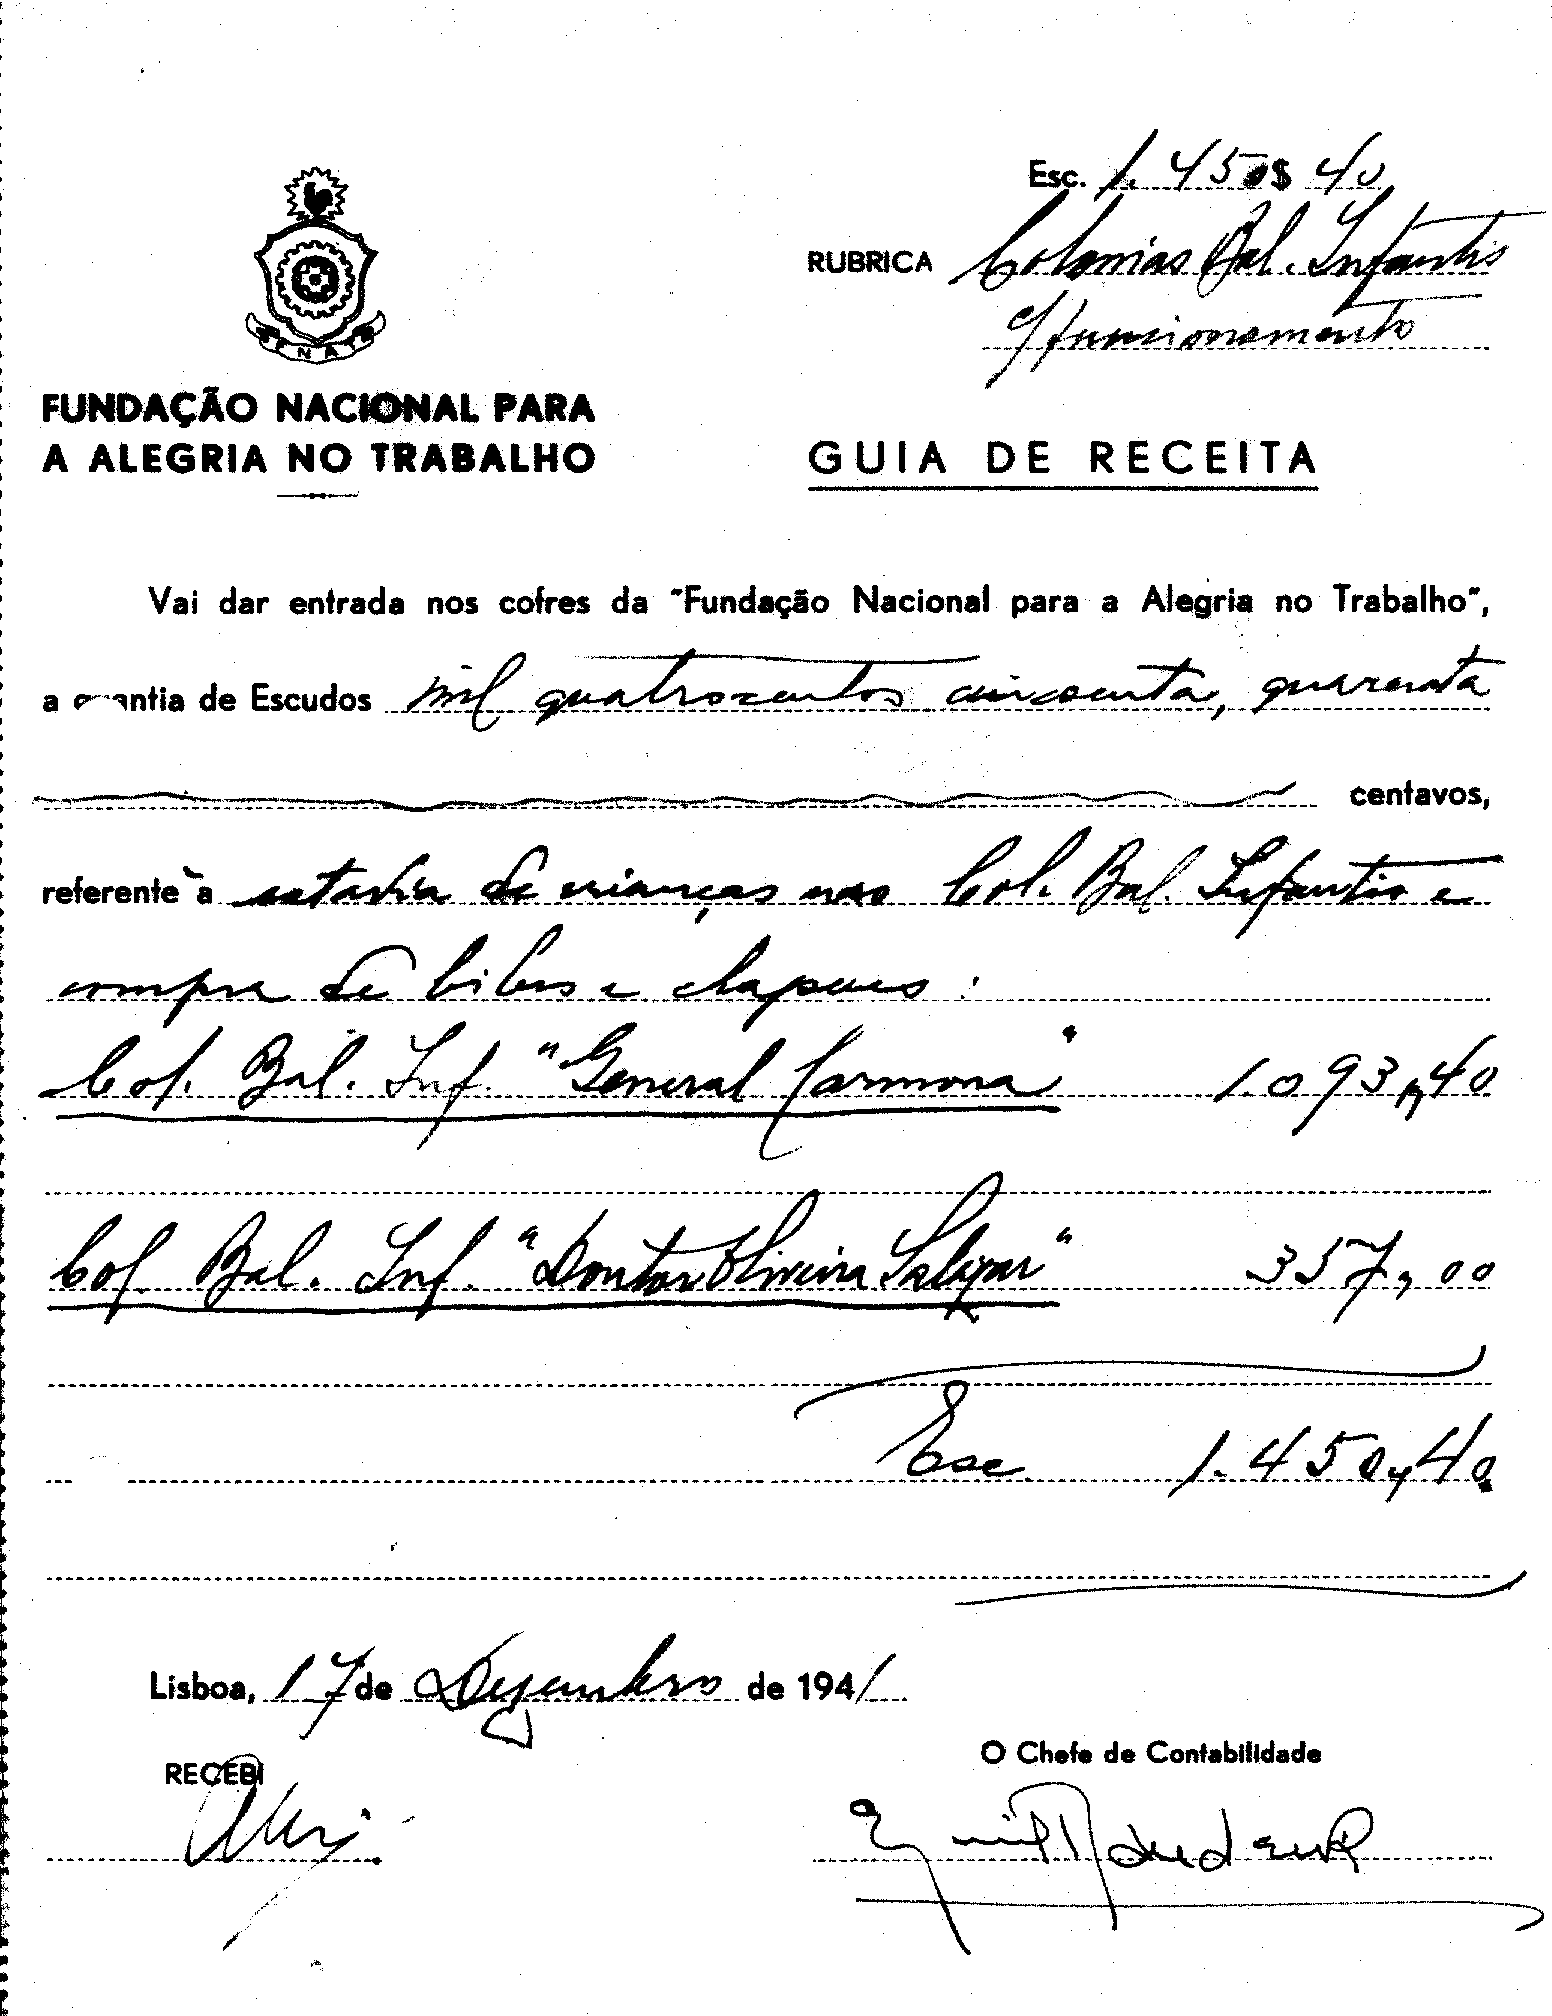 Esc. 1.450$40
RUBRICA Colonias Bal. Infantis
c/funcionamento
FENAT
FUNDAÇÃO NACIONAL PARA
A ALEGRIA NO TRABALHO
GUIA DE RECEITA
Vai dar entrada nos cofres da "Fundação Nacional para a Alegria no Trabalho",
a quantia de Escudos mil quatrocentos cincoenta, quarenta
centavos,
referente à estadia de crianças nas Col. Bal. Infantis e
compra de bibes e chapeus:
Col. Bal. Inf. "General Carmona" 1.093,40
Col. Bal. Inf. "Doutor Oliveira Salazar" 357,00
Esc. 1.450,40
Lisboa, 17 de Dezembro de 1941
RECEBI
O Chefe de Contabilidade